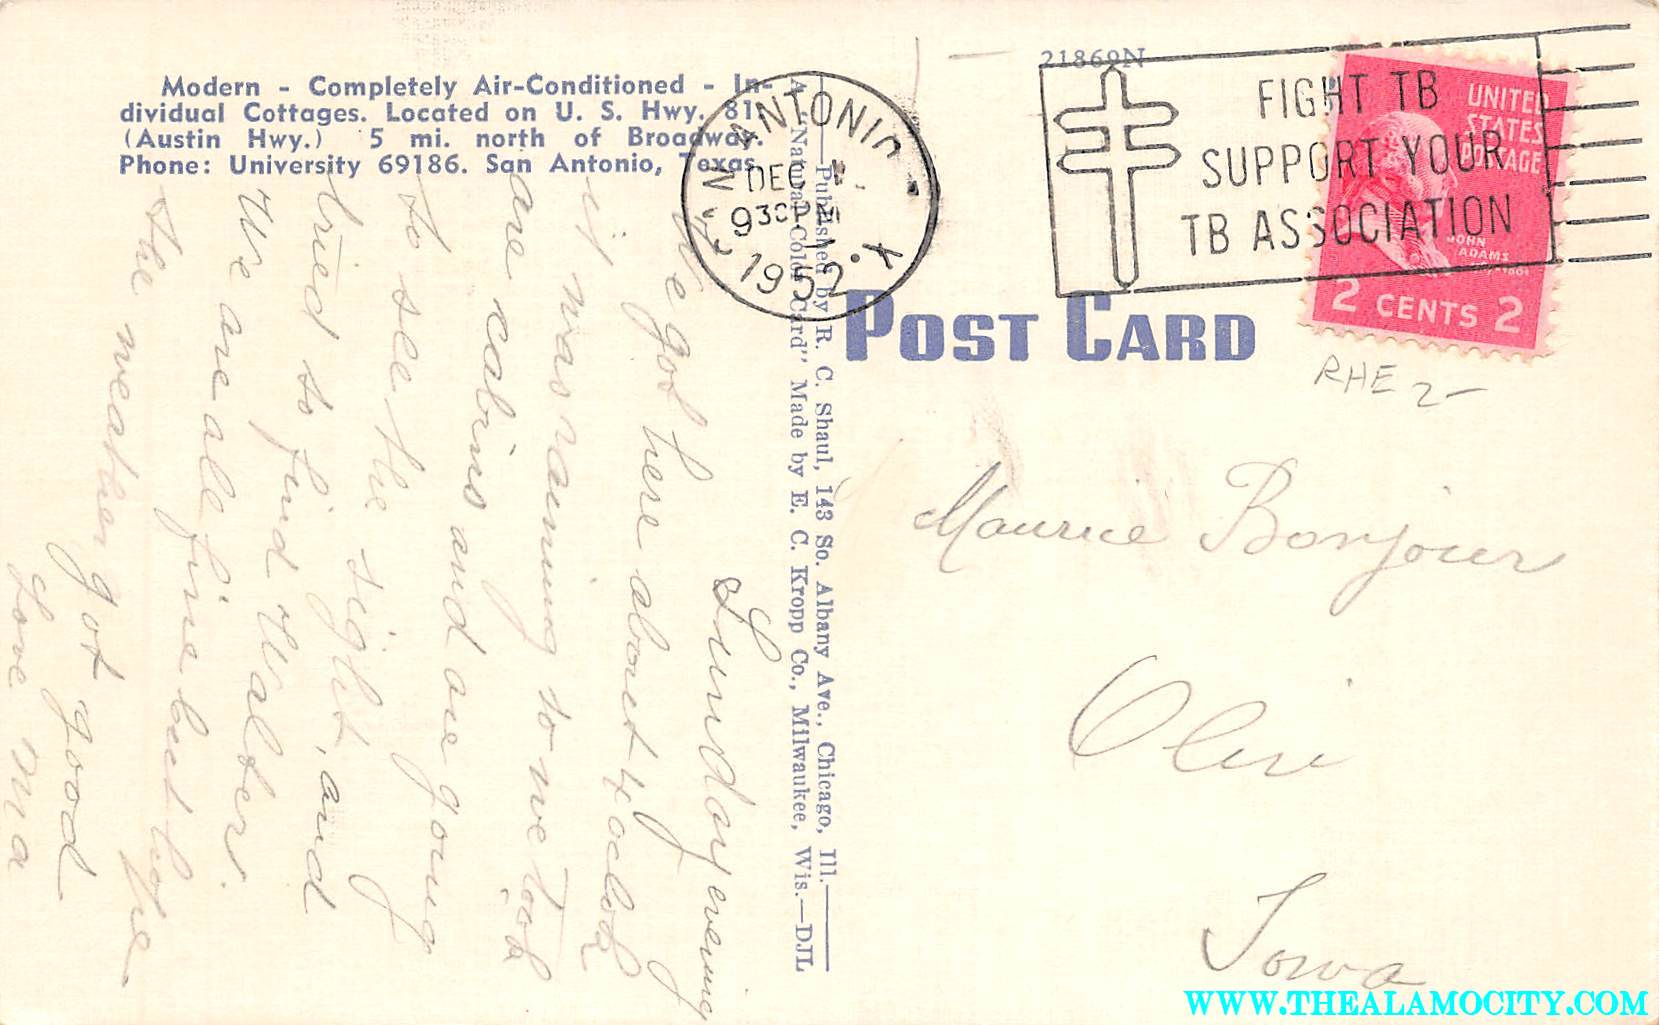 Modern - Completely Air-Conditioned - In-
dividual Cottages. Located on U. S. Hwy. 81
(Austin Hwy.) 5 mi. north of Broadway.
Phone: University 69186. San Antonio, Texas
Sunday evening
We got here about 4 oclock
it was raining so we took
are cabins and are going
to see the sight, and
tried to find Walters.
We are all fine but hope
the weather got good
Love Ma
A "Natural Color Card" Made by E. C. Kropp Co., Milwaukee, Wis.—DJL
—Published by R. C. Shaul, 143 So. Albany Ave., Chicago, Ill.—
21869N
SAN ANTONIO
DEC
930 PM
1952
TEX.
FIGHT TB
SUPPORT YOUR
TB ASSOCIATION
UNITED
STATES
POSTAGE
JOHN
ADAMS
2 CENTS 2
POST CARD
RHE 2-
Maurice Bonjour
Olin
Iowa
WWW.THEALAMOCITY.COM